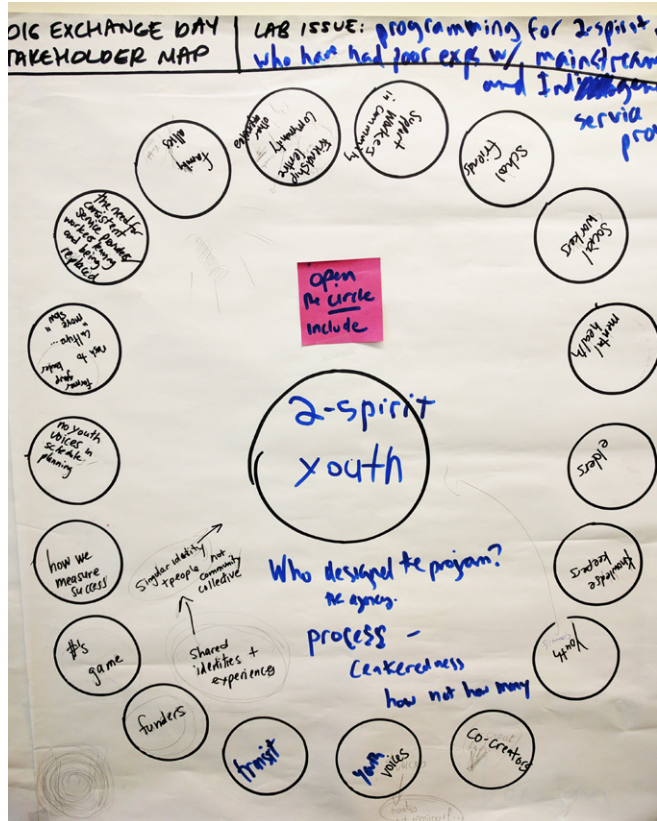 016 EXCHANGE DAY
TAKEHOLDER MAP
LAB ISSUE: programming for 2-spirit
who have had poor exps w/ mainstream
and Indigen
service
pro
family
allies
Friendship
Centre
Community
other
Support
Workers
in Community
School
friends
Social
workers
mental
health
elders
Knowledge
keepers
Youth
Co-creators
youth
voices
transit
funders
#'s
game
how we
measure
success
no youth
voices in
schedule
planning
"more
now"
the need for
consistent
service providers
workers leaving
and being
replaced
open
the circle
include
2-spirit
youth
Singular identity
+ people not
community
collective
Shared
identities +
experiences
Who designed the program?
the agency.
process -
Centeredness
how not how many